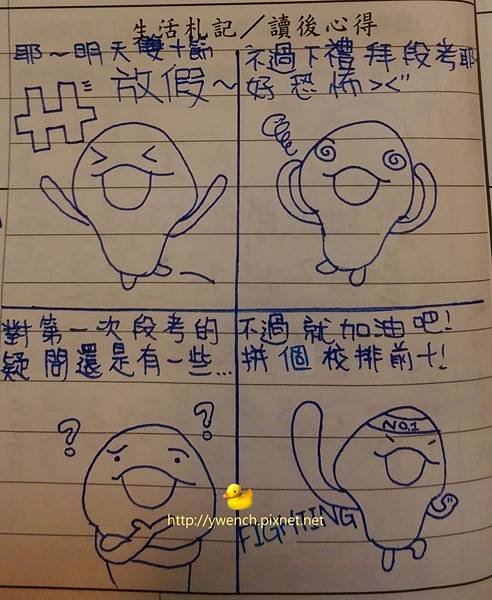 生活札記／讀後心得
耶～明天雙十節
放假～
不過下禮拜段考耶
好恐怖><"
對第一次段考的
疑問還是有一些...
? ?
不過就加油吧!
拼個校排前十!
NO.1
FIGHTING
http://ywench.pixnet.net